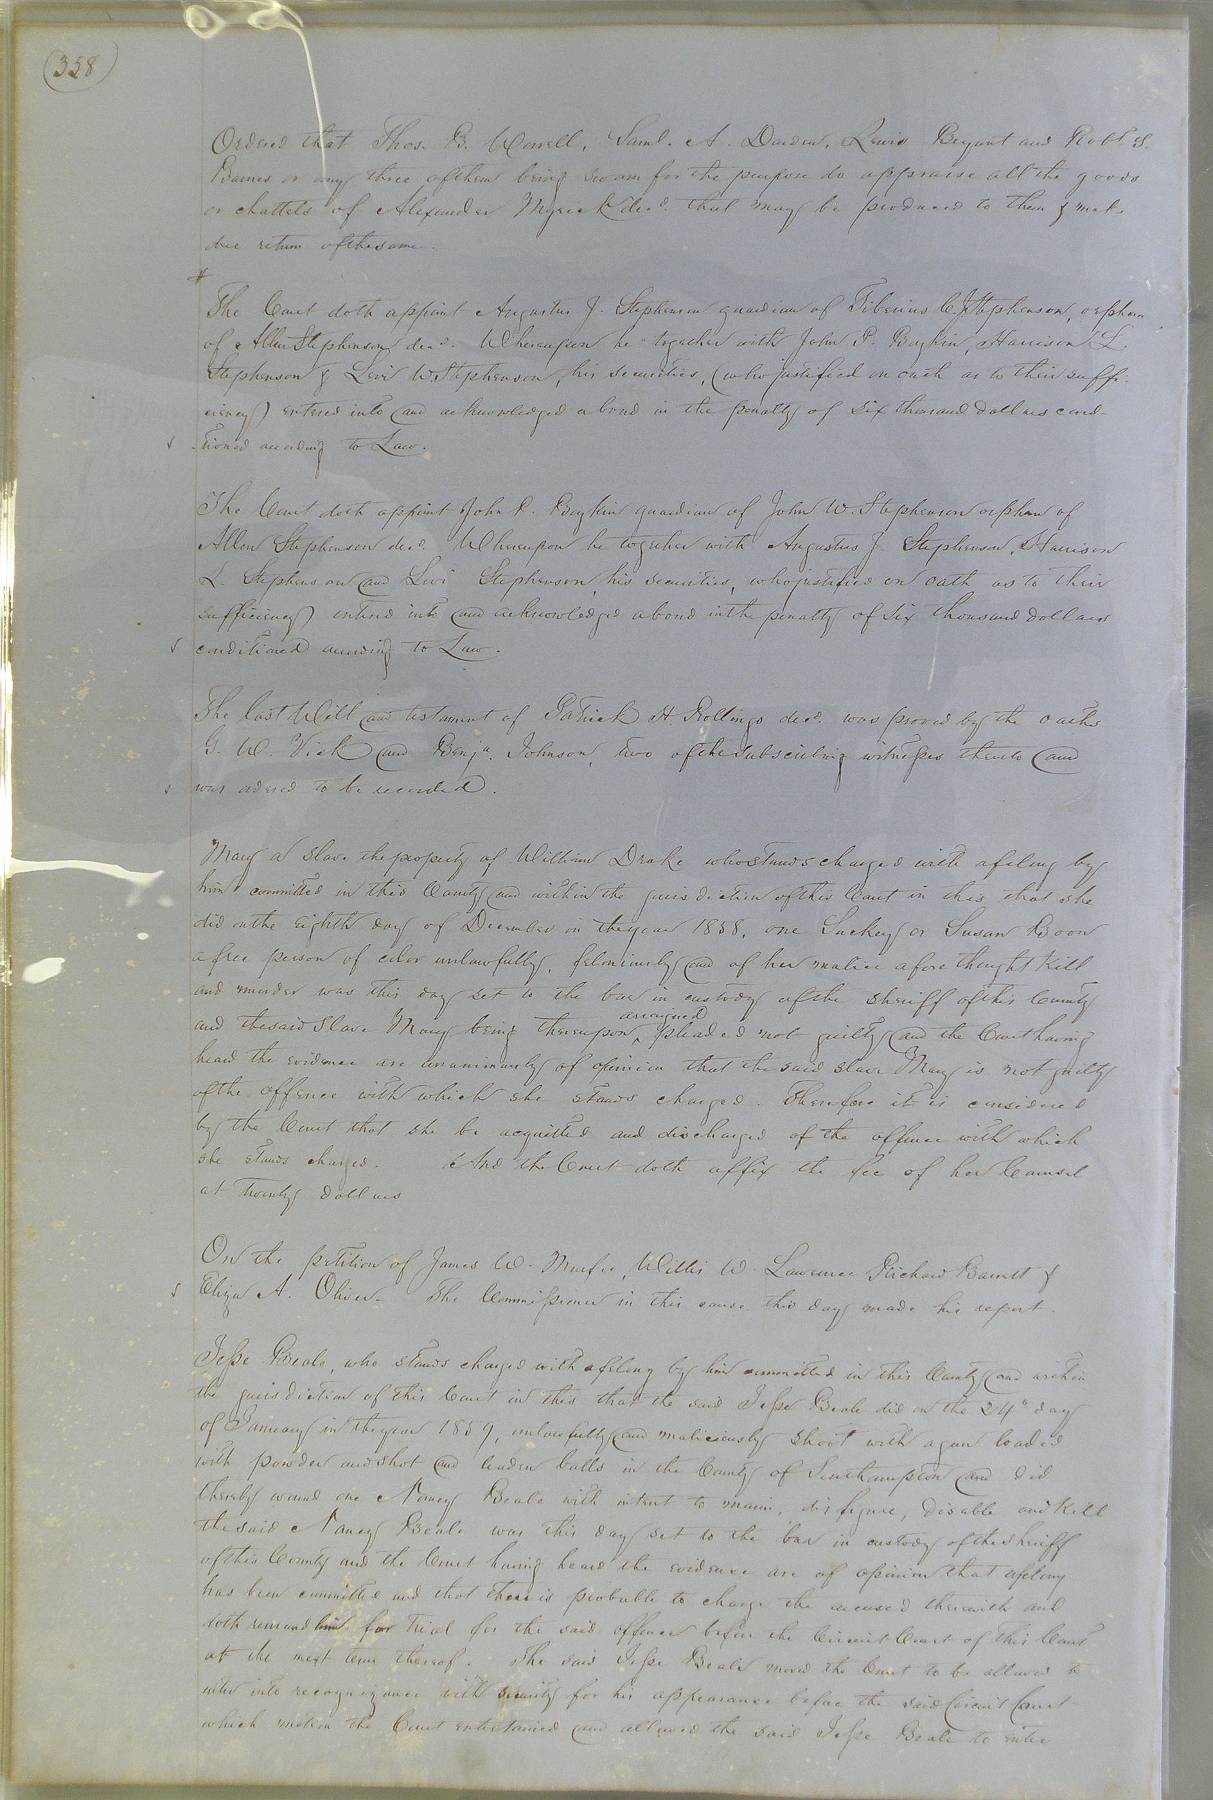 358
Ordered that Thos. B. Worrell, Saml. A. Darden, Lewis Bryant and Robt S.
Barnes or any three of them being sworn for the purpose do appraise all the goods
or chattels of Alexander Myrick decd. that may be produced to them & make
due return of the same.
The Court doth appoint Augustus J. Stephenson guardian of Tiberius C. J. Stephenson, orphan
of Allen Stephenson decd. Whereupon he together with John P. Boykin, Harrison L.
Stephenson & Levi W. Stephenson, his securities, (who justified on oath as to their suffi-
ciency) entered into and acknowledged a bond in the penalty of six thousand dollars cond-
s tioned according to Law.
The Court doth appoint John P. Boykin guardian of John W. Stephenson orphan of
Allen Stephenson decd. Whereupon he together with Augustus J. Stephenson, Harrison
L. Stephenson and Levi Stephenson, his securities, who justified on oath as to their
sufficiency) entered into and acknowledged a bond in the penalty of six thousand dollars
s conditioned according to Law.
The last Will and testament of Patrick H. Rollings decd. was proved by the oaths
G. W. Vick and Benja. Johnson, two of the subscribing witnesses thereto and
s was ordered to be recorded.
Mary a slave the property of William Drake who stands charged with a felony by
him committed in this County and within the jurisdiction of this Court in this, that she
did on the eighth day of December in the year 1858, one Suckey or Susan Boon
a free person of color unlawfully, feloniously and of her malice aforethought kill
and murder was this day set to the bar in custody of the sheriff of this County
and the said Slave Mary being thereupon ^ arraigned pleaded not guilty and the Court having
heard the evidence are unanimously of opinion that the said slave Mary is not guilty
of the offence with which she stands charged. Therefore it is considered
by the Court that she be acquitted and discharged of the offence with which
she stands charged. And the Court doth affix the fee of her Counsel
at twenty dollars
On the petition of James W. Murfee, Willis W. Lawrence Richard Barrett &
s Eliza A. Oliver. The Commissioner in this cause this day made his report.
Jesse Beale, who stands charged with a felony by him committed in this County and within
the jurisdiction of this Court in this that the said Jesse Beale did on the 24th day
of January in the year 1859, unlawfully and maliciously shoot with a gun loaded
with powder and shot and leaden balls in the County of Southampton and did
thereby wound one Nancy Beale with intent to maim, disfigure, disable and kill
the said Nancy Beale was this day set to the bar in custody of the sheriff
of this County and the Court having heard the evidence are of opinion that a felony
has been committed and that there is probable to charge the accused therewith and
doth remand him for trial for the said offence before the Circuit Court of this County
at the next term thereof. The said Jesse Beale moved the Court to be allowed to
enter into recognizance with security for his appearance before the said Circuit Court
which motion the Court entertained and allowed the said Jesse Beale to enter